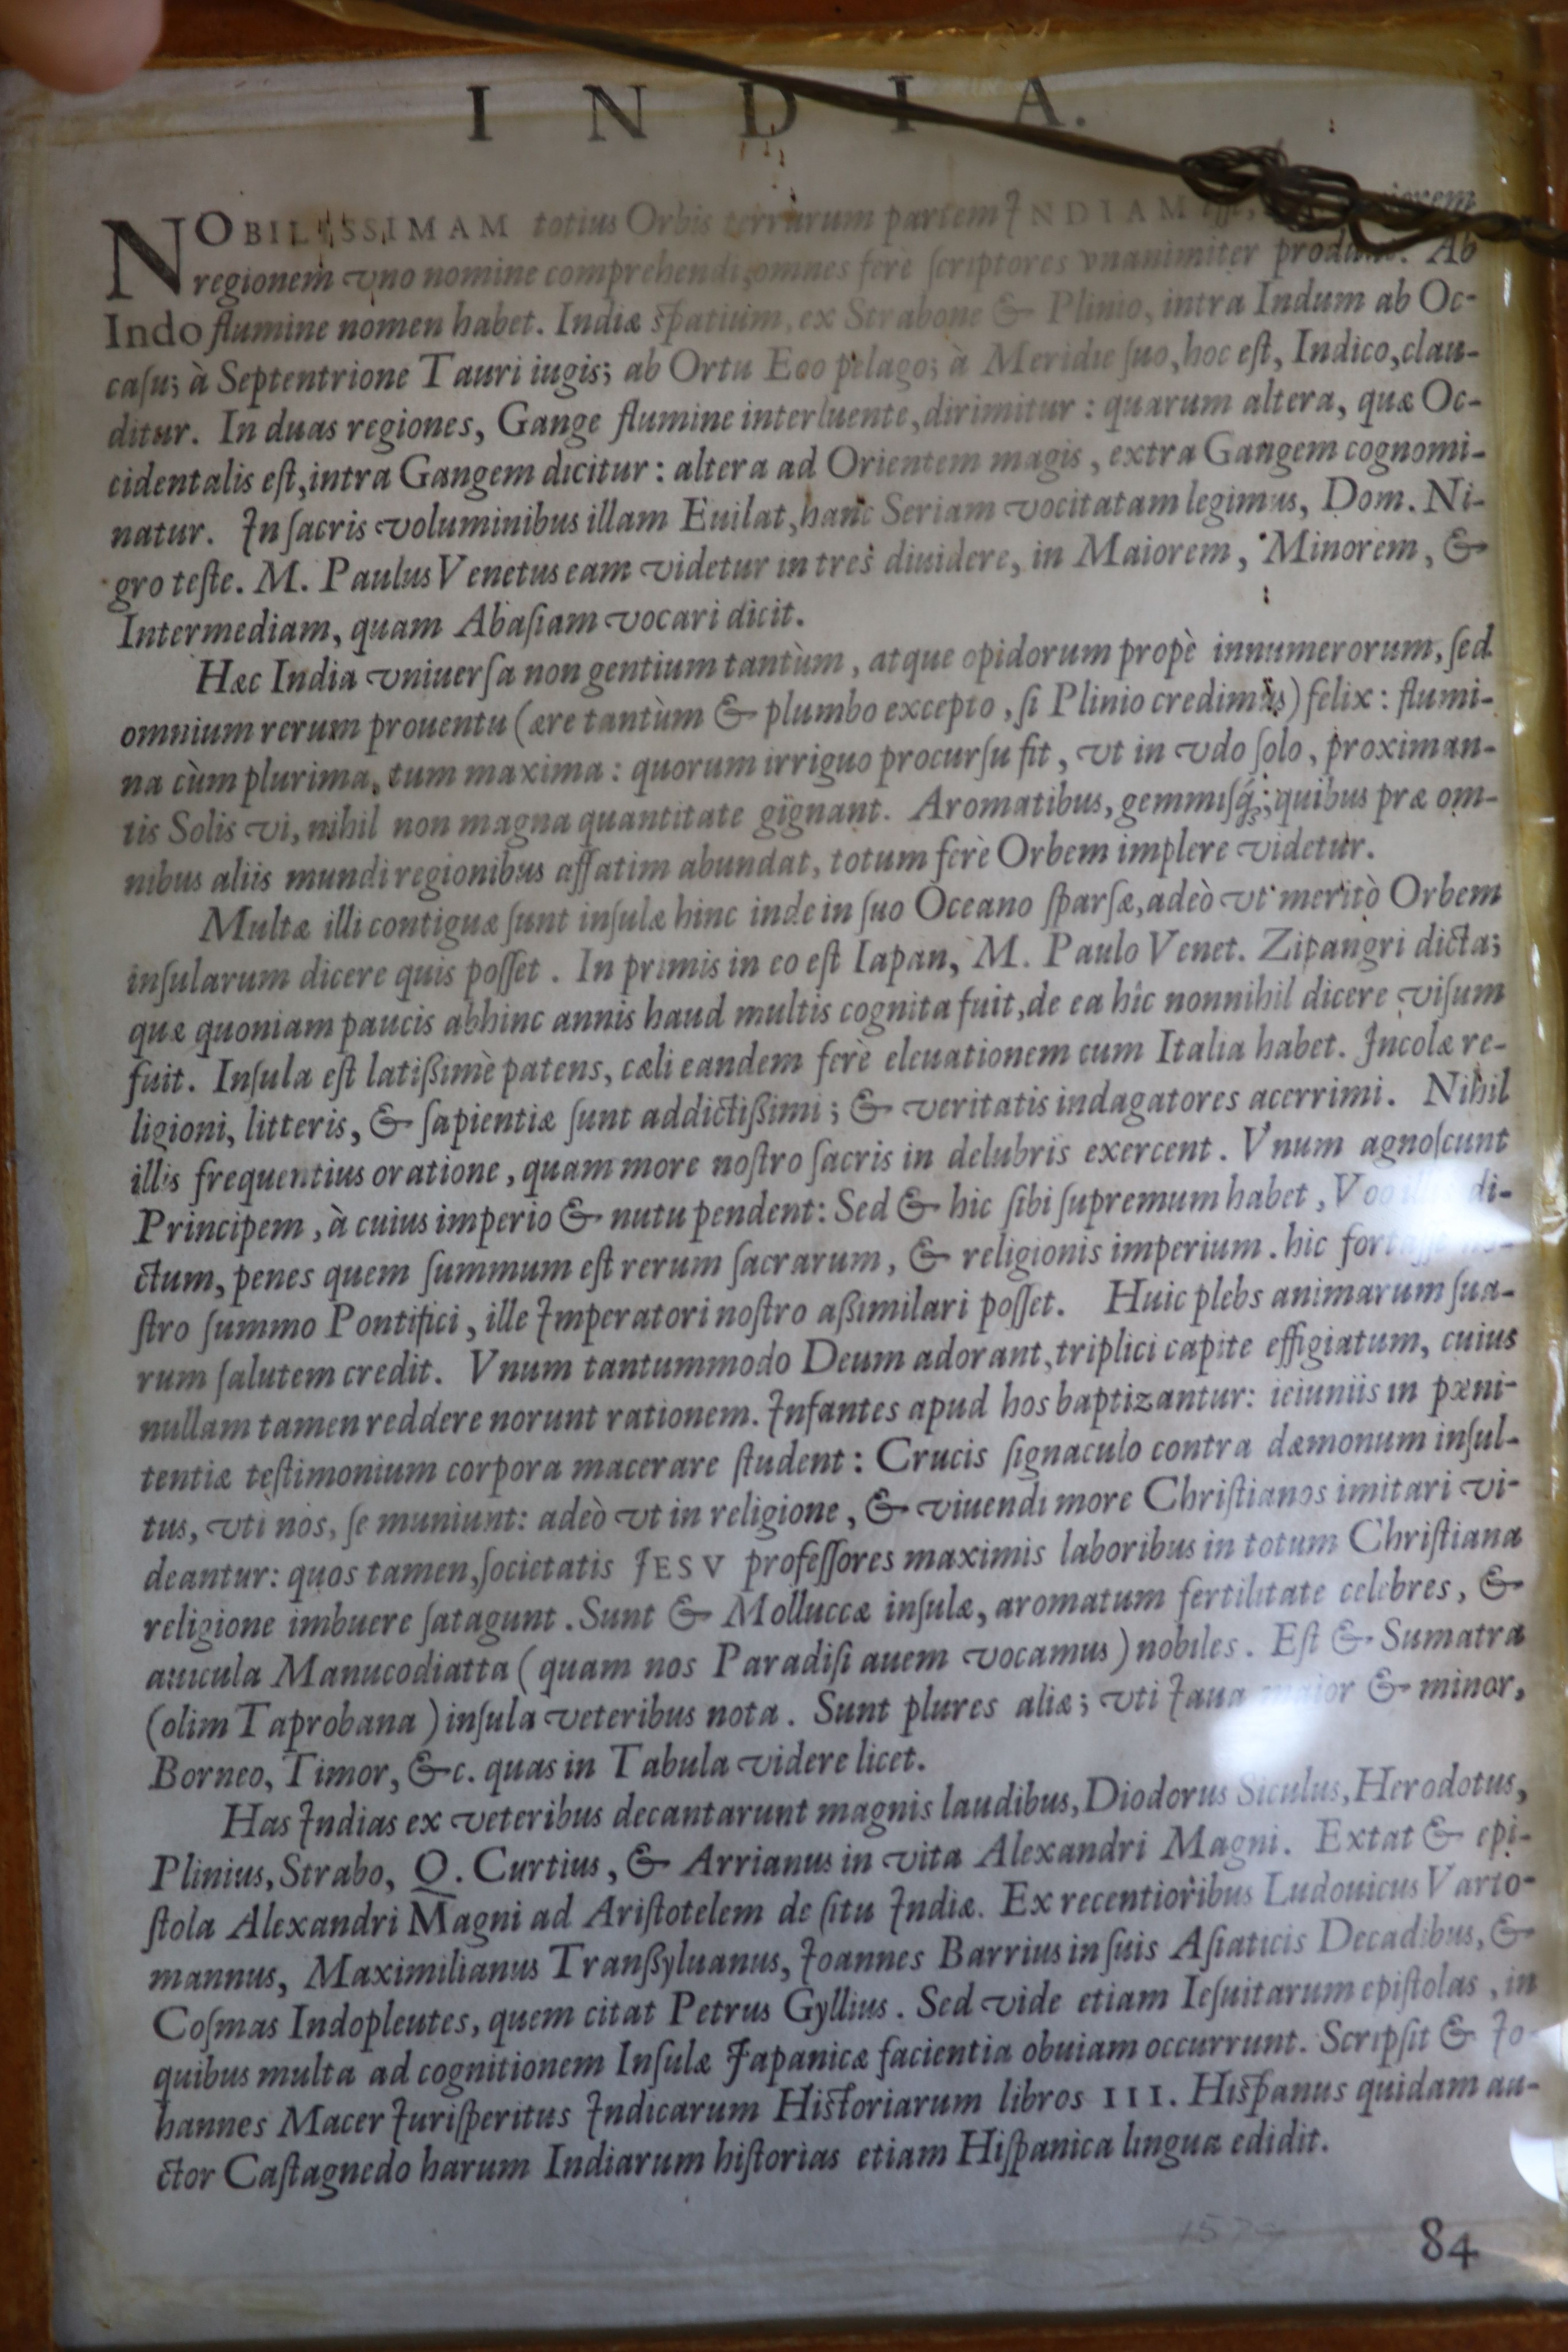 INDIA.
NOBILISSIMAM totius Orbis terrarum partem INDIAM esse,
regionem vno nomine comprehendi, omnes ferè scriptores vnanimiter produnt. Ab
Indo flumine nomen habet. Indiæ spatium, ex Strabone & Plinio, intra Indum ab Oc-
casu; à Septentrione Tauri iugis; ab Ortu Eoo pelago; à Meridie suo, hoc est, Indico, clau-
ditur. In duas regiones, Gange flumine interluente, dirimitur: quarum altera, quæ Oc-
cidentalis est, intra Gangem dicitur: altera ad Orientem magis, extra Gangem cognomi-
natur. In sacris voluminibus illam Euilat, hanc Seriam vocitatam legimus, Dom. Ni-
gro teste. M. Paulus Venetus eam videtur in tres diuidere, in Maiorem, Minorem, &
Intermediam, quam Abasiam vocari dicit.
Hæc India vniuersa non gentium tantùm, atque opidorum propè innumerorum, sed
omnium rerum prouentu (ære tantùm & plumbo excepto, si Plinio credimus) felix: flumi-
na cùm plurima, tum maxima: quorum irriguo procursu fit, vt in vdo solo, proximan-
tis Solis vi, nihil non magna quantitate gignant. Aromatibus, gemmisq́;; quibus præ om-
nibus aliis mundi regionibus affatim abundat, totum ferè Orbem implere videtur.
Multæ illi contiguæ sunt insulæ hinc inde in suo Oceano sparsæ, adeò vt meritò Orbem
insularum dicere quis posset. In primis in eo est Iapan, M. Paulo Venet. Zipangri dicta;
quæ quoniam paucis abhinc annis haud multis cognita fuit, de ea hîc nonnihil dicere visum
fuit. Insula est latißimè patens, cæli eandem ferè eleuationem cum Italia habet. Incolæ re-
ligioni, litteris, & sapientiæ sunt addictißimi; & veritatis indagatores acerrimi. Nihil
illis frequentius oratione, quam more nostro sacris in delubris exercent. Vnum agnoscunt
Principem, à cuius imperio & nutu pendent: Sed & hic sibi supremum habet, Voo di-
ctum, penes quem summum est rerum sacrarum, & religionis imperium. hic fortasse no-
stro summo Pontifici, ille Imperatori nostro aßimilari posset. Huic plebs animarum sua-
rum salutem credit. Vnum tantummodo Deum adorant, triplici capite effigiatum, cuius
nullam tamen reddere norunt rationem. Infantes apud hos baptizantur: ieiuniis in pæni-
tentiæ testimonium corpora macerare student: Crucis signaculo contra dæmonum insul-
tus, vti nos, se muniunt: adeò vt in religione, & viuendi more Christianos imitari vi-
deantur: quos tamen, societatis IESV professores maximis laboribus in totum Christiana
religione imbuere satagunt. Sunt & Molluccæ insulæ, aromatum fertilitate celebres, &
auicula Manucodiatta (quam nos Paradisi auem vocamus) nobiles. Est & Sumatra
(olim Taprobana) insula veteribus nota. Sunt plures aliæ; vti Iaua maior & minor,
Borneo, Timor, &c. quas in Tabula videre licet.
Has Indias ex veteribus decantarunt magnis laudibus, Diodorus Siculus, Herodotus,
Plinius, Strabo, Q. Curtius, & Arrianus in vita Alexandri Magni. Extat & epi-
stola Alexandri Magni ad Aristotelem de situ Indiæ. Ex recentioribus Ludouicus Varto-
mannus, Maximilianus Transßyluanus, Ioannes Barrius in suis Asiaticis Decadibus, &
Cosmas Indopleutes, quem citat Petrus Gyllius. Sed vide etiam Iesuitarum epistolas, in
quibus multa ad cognitionem Insulæ Iapanicæ facientia obuiam occurrunt. Scripsit & Io-
hannes Macer Iurisperitus Indicarum Historiarum libros III. Hispanus quidam au-
ctor Castagnedo harum Indiarum historias etiam Hispanica lingua edidit.
84